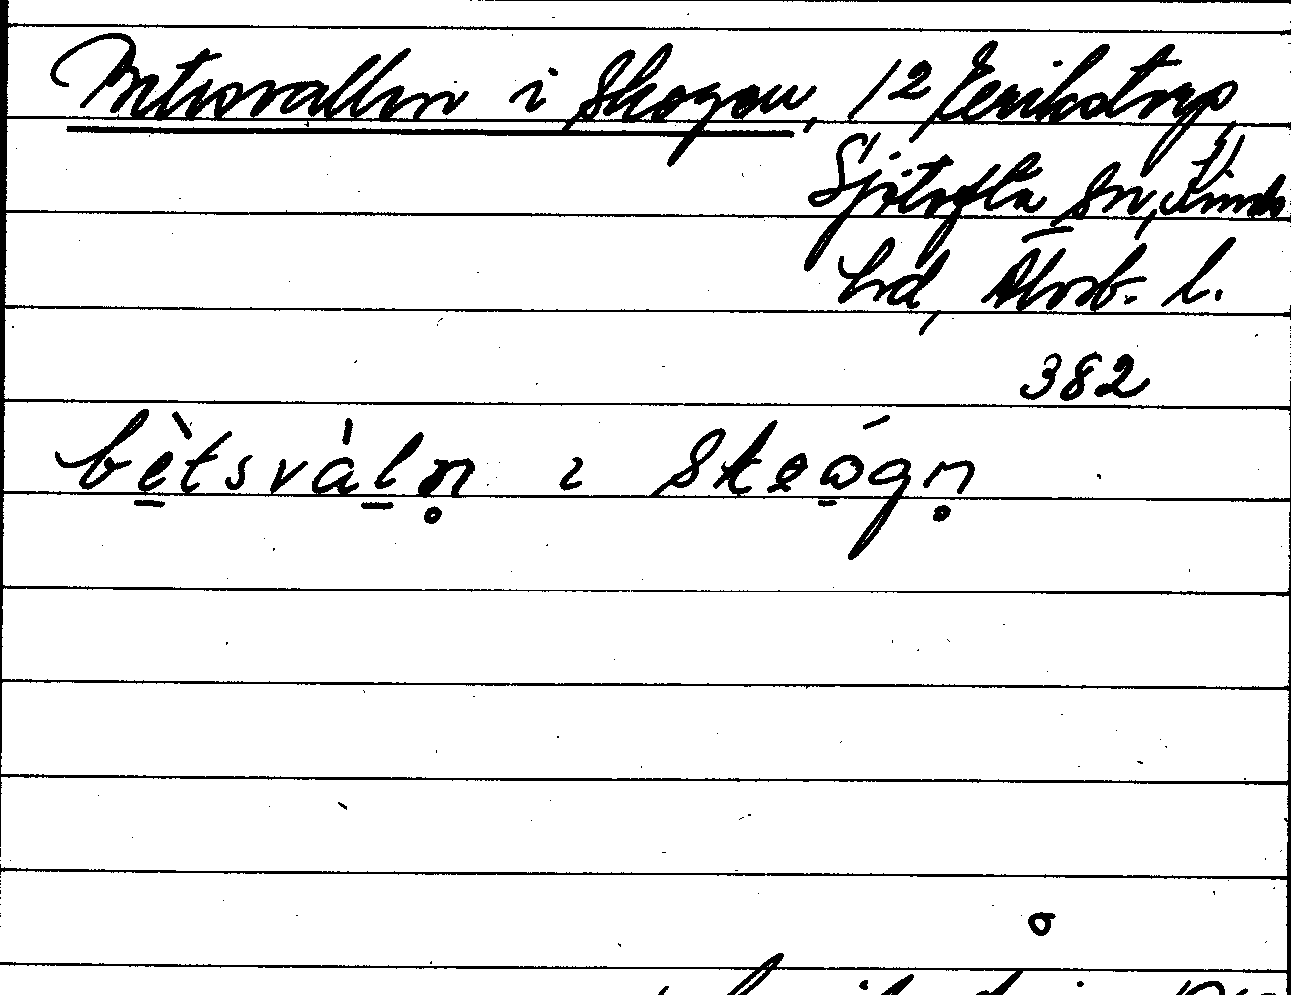 Betesvallen i Skogen, 12 Eerikstorp,
Sjötofta sn, Kinds
hd, Älvsb. l.
382
bètsvàln ı Skeógn